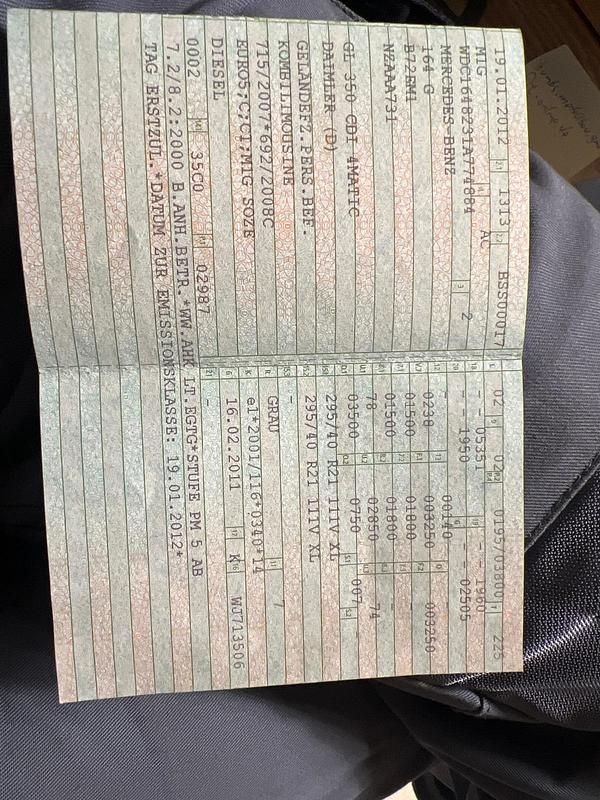 19.01.2012 1313 BSS00017
MIG AC
WDC1648231A774884 2
MERCEDES-BENZ
164 G
B72EM1
NZAAA731
GL 350 CDI 4MATIC
DAIMLER (D)
GELÄNDEFZ.PERS.BEF.
KOMBILIMOUSINE
715/2007*692/2008C
EURO5;C;CI;MIG SOZE
DIESEL
0002 35C0 02987
7.2/8.2:2000 B.ANH.BETR.*WW.AHK LT.EGTG*STUFE PM 5 AB
TAG ERSTZUL.*DATUM ZUR EMISSIONSKLASSE: 19.01.2012*
02 02 0195/03800 225
- - 05351 - - 1980
- - 1950 - - 02505
00140 -
0238 003250 003250
01500 01800 -
01500 01800 -
78 02850 74
03500 0750 007
295/40 R21 111V XL
295/40 R21 111V XL
-
GRAU 7
e1*2001/116*0340*14
16.02.2011 K WU713506
-